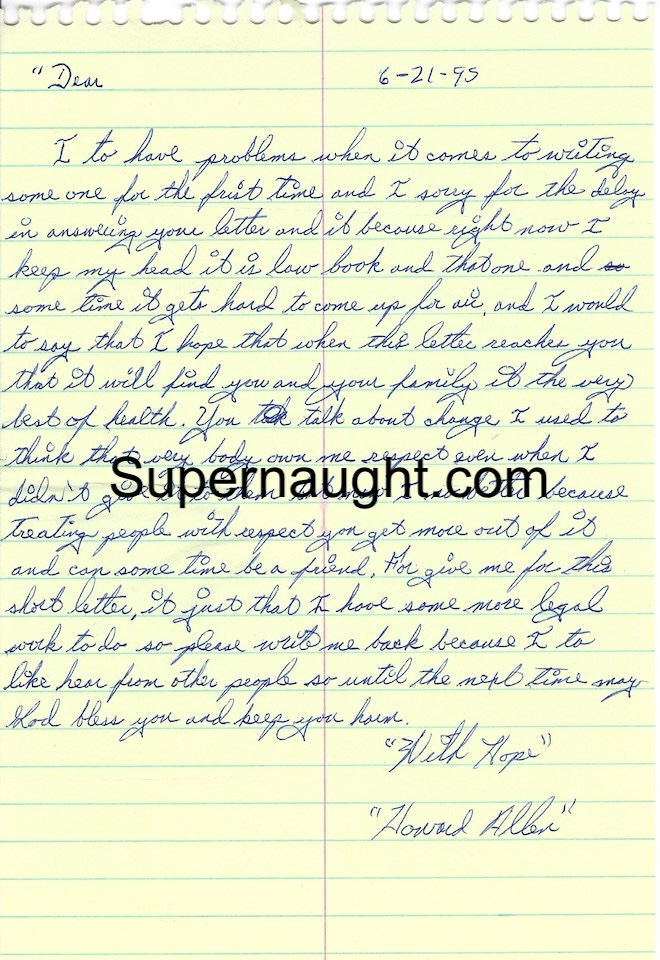 "Dear 6-21-95
I to have problems when it comes to writing
some one for the frist time and I sorry for the delay
in answering your letter and it because right now I
keep my head it is law book and that one and so
some time it gets hard to come up for air, and I would
to say that I hope that when this letter reaches you
that it will find you and your family it the very
best of health. You talk about change I used to
think that very body own me respect even when I
Supernaught.com
didn't give it to them but now I because
treating people with respect you get more out of it
and can some time be a friend. For give me for this
short letter, it just that I have some more legal
work to do so please write me back because I to
like hear from other people so until the next time may
God bless you and keep you harm.
"With Hope"
"Howard Allen"